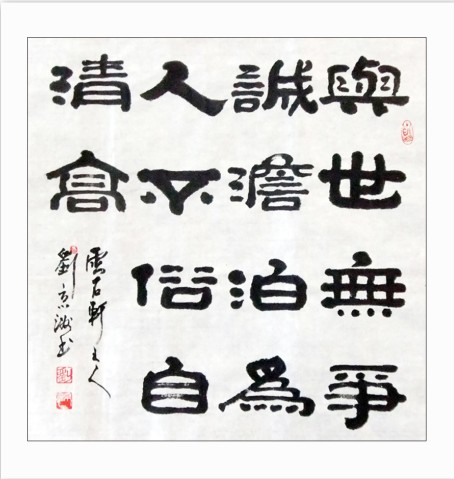 與世無爭
誠澹泊為
人不俗自
清高
雲石軒主人
劉京書